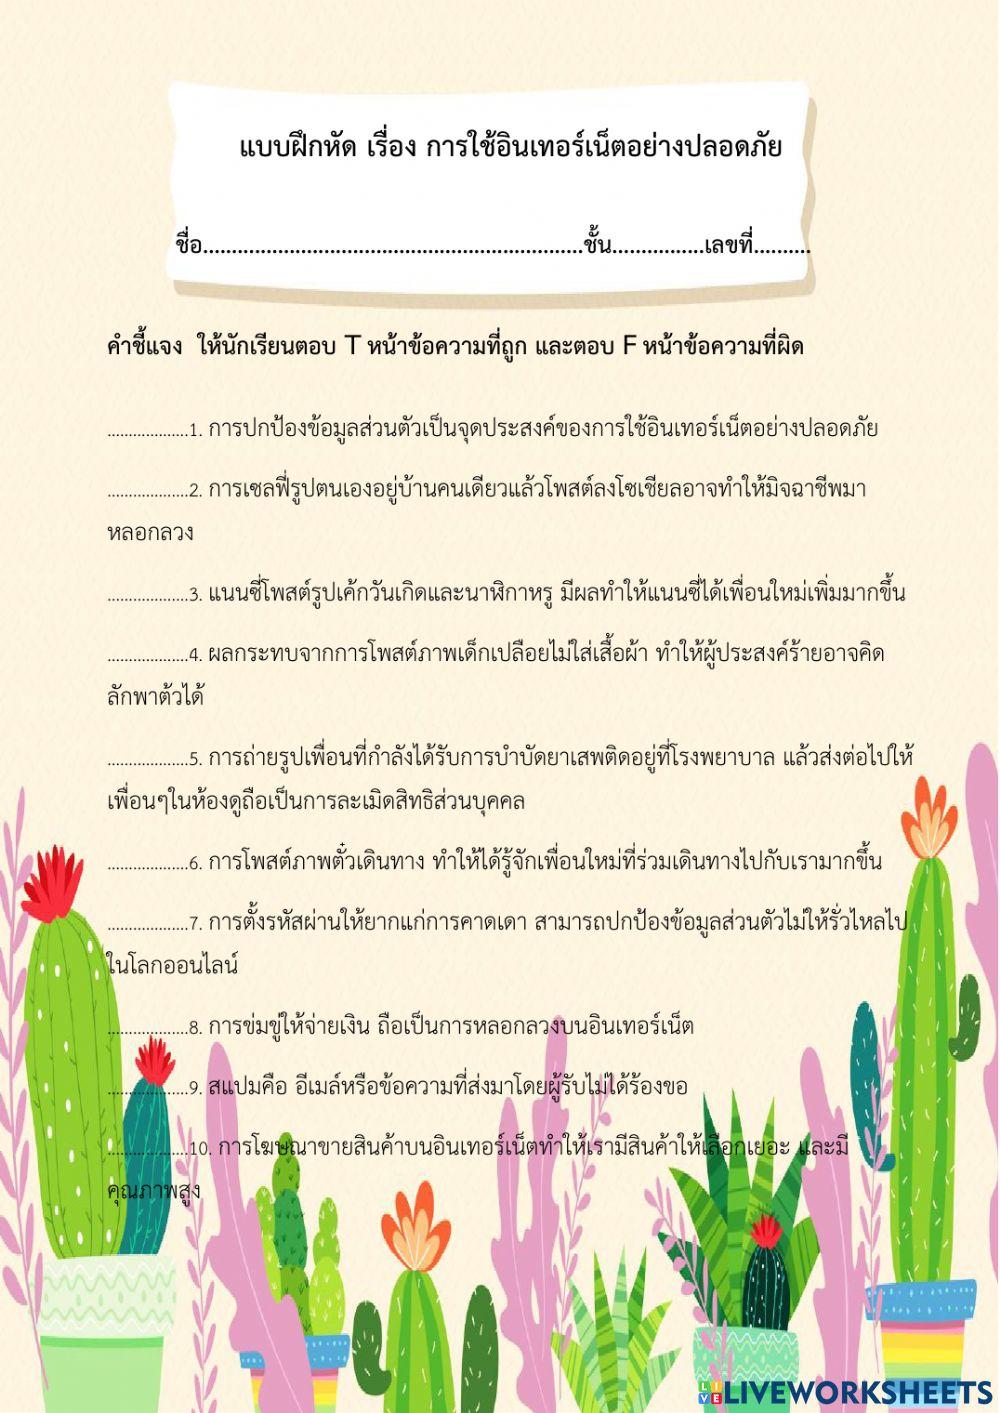 แบบฝึกหัด เรื่อง การใช้อินเทอร์เน็ตอย่างปลอดภัย
ชื่อ..................................................................ชั้น................เลขที่..........
คำชี้แจง ให้นักเรียนตอบ T หน้าข้อความที่ถูก และตอบ F หน้าข้อความที่ผิด
...................1. การปกป้องข้อมูลส่วนตัวเป็นจุดประสงค์ของการใช้อินเทอร์เน็ตอย่างปลอดภัย
...................2. การเซลฟี่รูปตนเองอยู่บ้านคนเดียวแล้วโพสต์ลงโซเชียลอาจทำให้มิจฉาชีพมา
หลอกลวง
...................3. แนนซี่โพสต์รูปเค้กวันเกิดและนาฬิกาหรู มีผลทำให้แนนซี่ได้เพื่อนใหม่เพิ่มมากขึ้น
...................4. ผลกระทบจากการโพสต์ภาพเด็กเปลือยไม่ใส่เสื้อผ้า ทำให้ผู้ประสงค์ร้ายอาจคิด
ลักพาตัวได้
...................5. การถ่ายรูปเพื่อนที่กำลังได้รับการบำบัดยาเสพติดอยู่ที่โรงพยาบาล แล้วส่งต่อไปให้
เพื่อนๆในห้องดูถือเป็นการละเมิดสิทธิส่วนบุคคล
...................6. การโพสต์ภาพตั๋วเดินทาง ทำให้ได้รู้จักเพื่อนใหม่ที่ร่วมเดินทางไปกับเรามากขึ้น
...................7. การตั้งรหัสผ่านให้ยากแก่การคาดเดา สามารถปกป้องข้อมูลส่วนตัวไม่ให้รั่วไหลไป
ในโลกออนไลน์
...................8. การข่มขู่ให้จ่ายเงิน ถือเป็นการหลอกลวงบนอินเทอร์เน็ต
...................9. สแปมคือ อีเมล์หรือข้อความที่ส่งมาโดยผู้รับไม่ได้ร้องขอ
...................10. การโฆษณาขายสินค้าบนอินเทอร์เน็ตทำให้เรามีสินค้าให้เลือกเยอะ และมี
คุณภาพสูง
LIVE LIVEWORKSHEETS